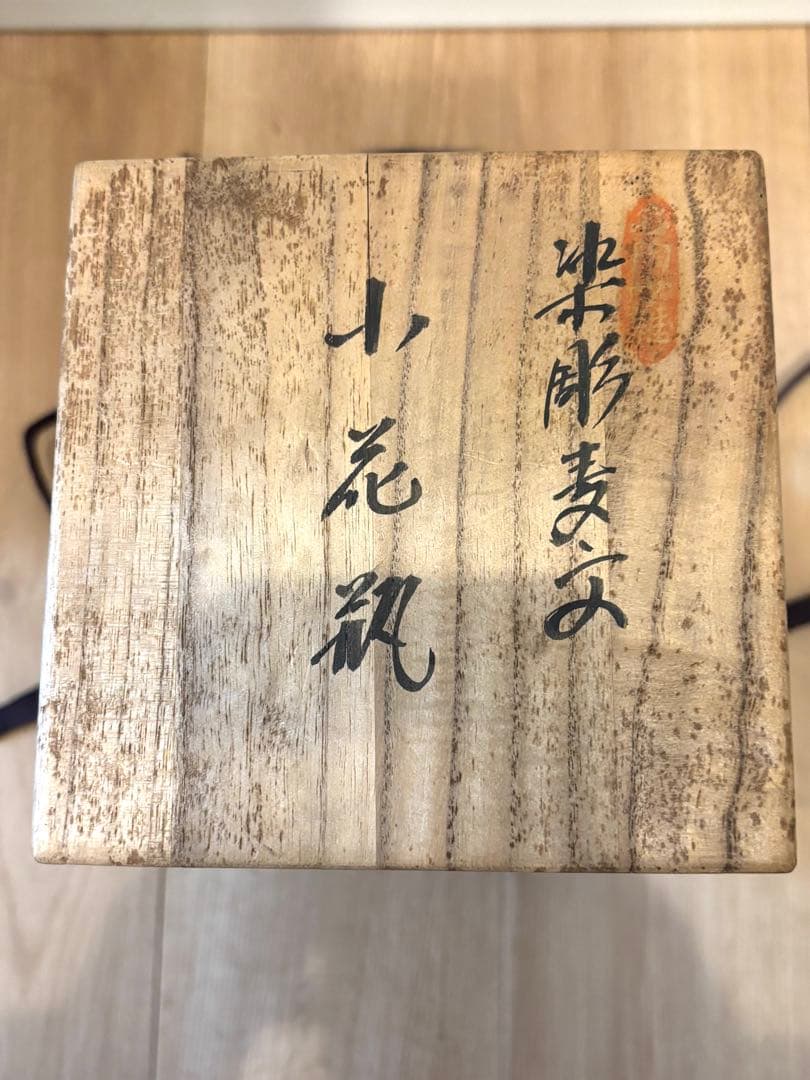 染彫麦文
小花瓶